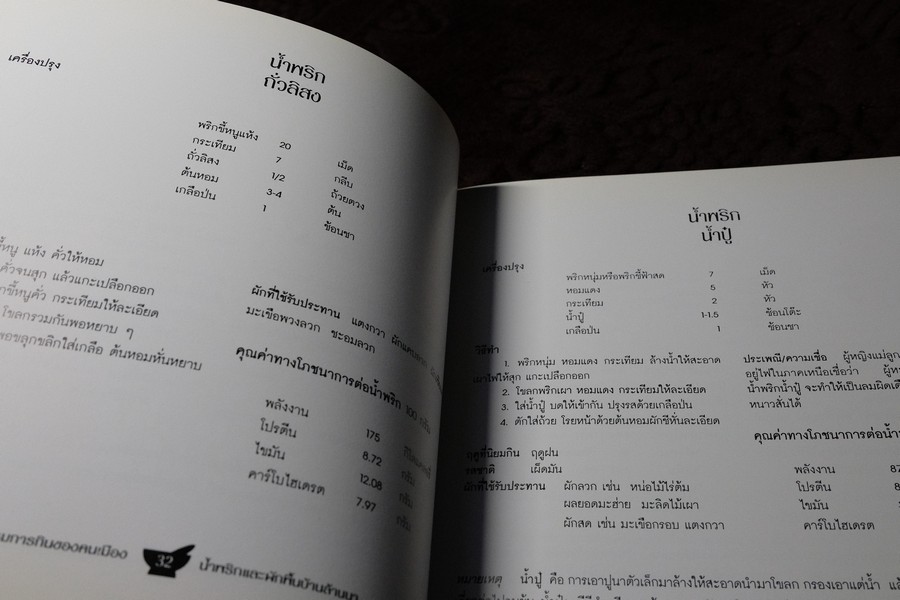 น้ำพริก
ถั่วลิสง
เครื่องปรุง
พริกขี้หนูแห้ง 20 เม็ด
กระเทียม 7 กลีบ
ถั่วลิสง 1/2 ถ้วยตวง
ต้นหอม 3-4 ต้น
เกลือป่น 1 ช้อนชา
แห้ง คั่วให้หอม
คั่วจนสุก แล้วแกะเปลือกออก
กระเทียมให้ละเอียด
โขลกรวมกันพอหยาบ ๆ
ต้นหอมหั่นหยาบ
ผักที่ใช้รับประทาน แตงกวา
มะเขือพวงลวก ชะอมลวก
คุณค่าทางโภชนาการต่อน้ำพริก 100 กรัม
พลังงาน 175
โปรตีน 8.72 กรัม
ไขมัน 12.08 กรัม
คาร์โบไฮเดรต 7.97 กรัม
32 น้ำพริกและผักพื้นบ้านล้านนา
น้ำพริก
น้ำปู๋
เครื่องปรุง
พริกหนุ่มหรือพริกชี้ฟ้าสด 7 เม็ด
หอมแดง 5 หัว
กระเทียม 2 หัว
น้ำปู๋ 1-1.5 ช้อนโต๊ะ
เกลือป่น 1 ช้อนชา
วิธีทำ
1. พริกหนุ่ม หอมแดง กระเทียม ล้างน้ำให้สะอาด
เผาไฟให้สุก แกะเปลือกออก
2. โขลกพริกเผา หอมแดง กระเทียมให้ละเอียด
3. ใส่น้ำปู๋ บดให้เข้ากัน ปรุงรสด้วยเกลือป่น
4. ตักใส่ถ้วย โรยหน้าด้วยต้นหอมผักชีหั่นละเอียด
ฤดูที่นิยมกิน ฤดูฝน
รสชาติ เผ็ดมัน
ผักที่ใช้รับประทาน ผักลวก เช่น หน่อไม้ไร่ต้ม
ผลยอดมะฮ่าย มะลิดไม้เผา
ผักสด เช่น มะเขือกรอบ แตงกวา
ประเพณี/ความเชื่อ ผู้หญิงแม่ลูก
อยู่ไฟในภาคเหนือเชื่อว่า
น้ำพริกน้ำปู๋ จะทำให้เป็นลมผิดเดือน
หนาวสั่นได้
คุณค่าทางโภชนาการต่อน้ำ
พลังงาน
โปรตีน
ไขมัน
คาร์โบไฮเดรต
หมายเหตุ น้ำปู๋ คือ การเอาปูนาตัวเล็กมาล้างให้สะอาดนำมาโขลก กรองเอาแต่น้ำ